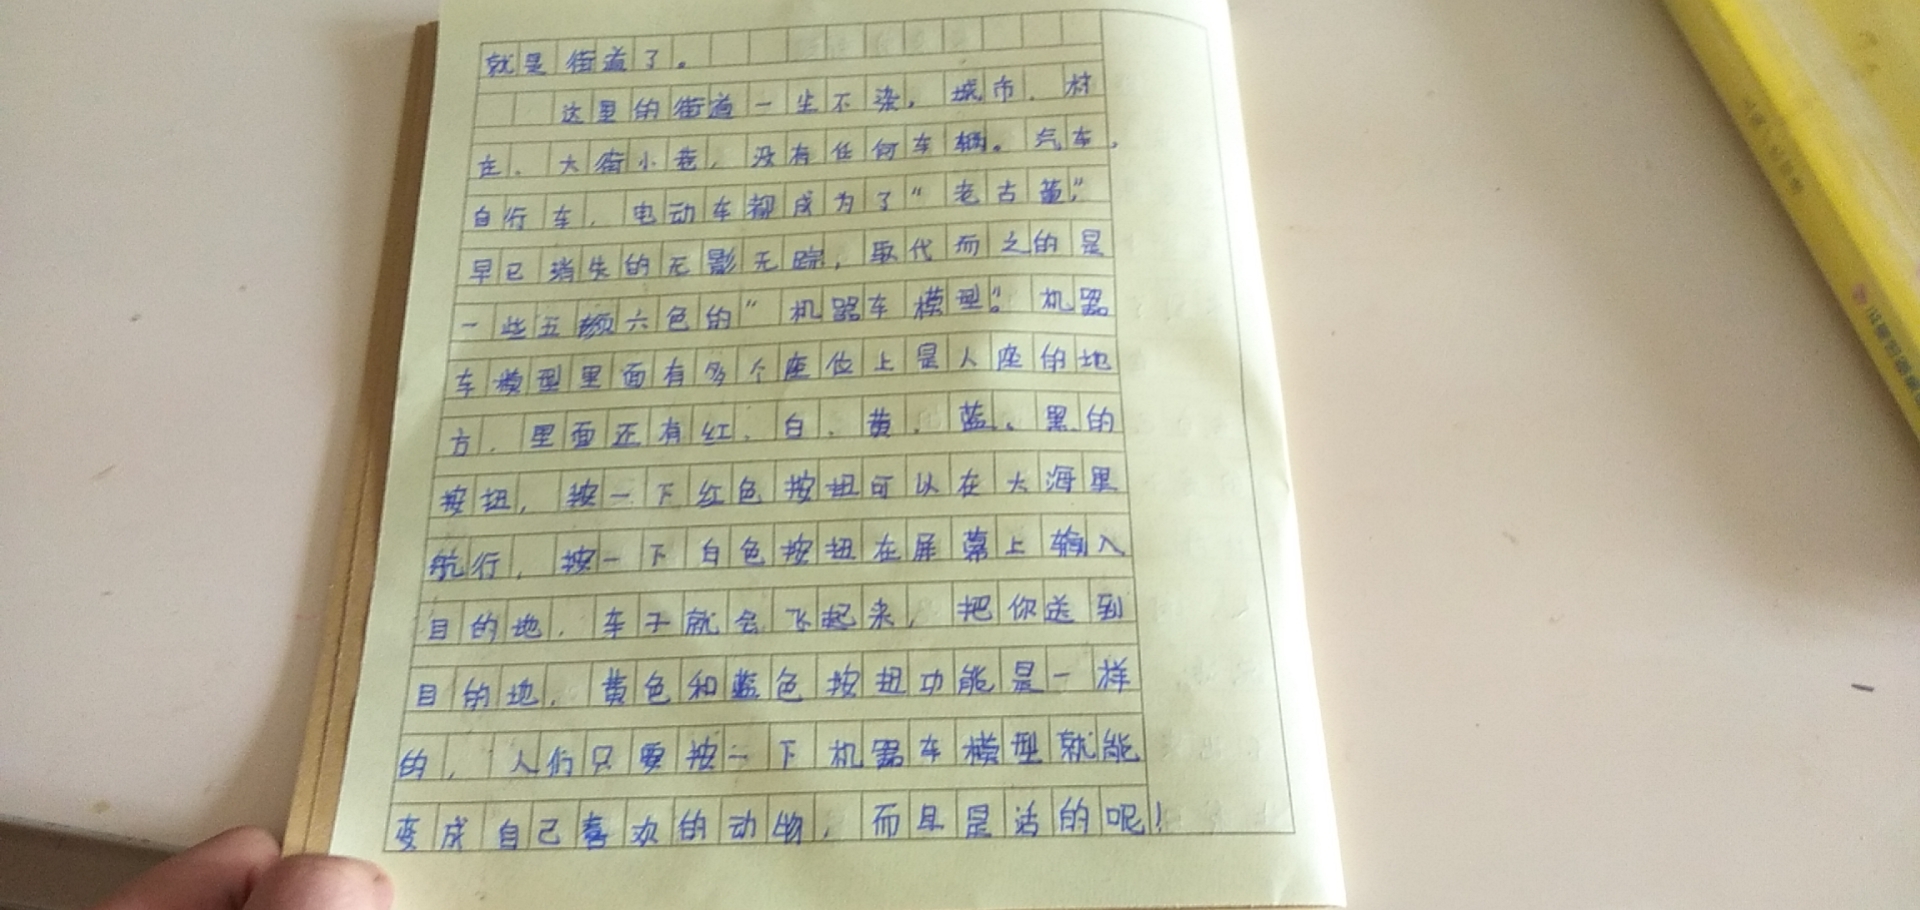 就是街道了。
这里的街道一尘不染,城市、村
庄、大街小巷,没有任何车辆。汽车,
自行车,电动车都成为了“老古董”
早已消失的无影无踪,取代而之的是
一些五颜六色的“机器车模型”。机器
车模型里面有多个座位上是人座的地
方,里面还有红、白、黄、蓝、黑的
按扭,按一下红色按扭可以在大海里
航行,按一下白色按扭在屏幕上输入
目的地,车子就会飞起来,把你送到
目的地,黄色和蓝色按扭功能是一样
的,人们只要按一下机器车模型就能
变成自己喜欢的动物,而且是活的呢!